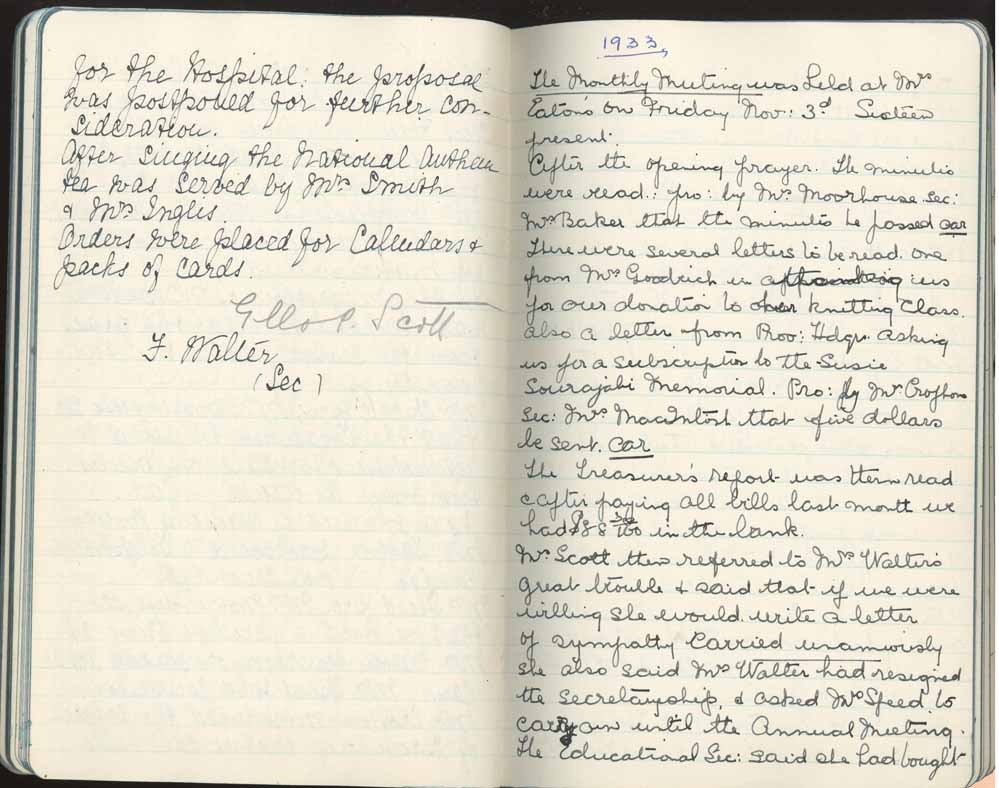 for the Hospital: the proposal
was postponed for further con-
sideration.
After singing the National Anthem
tea was served by Mrs Smith
& Mrs Inglis.
Orders were placed for Callendars &
packs of cards.
Scott
F. Walter
(Sec)
1933,
The Monthly Meeting was held at Mrs
Eaton's on Friday Nov: 3d Sixteen
present.
After the opening prayer. The minutes
were read: pro: by Mrs Moorhouse sec:
Mrs Baker that the minutes be passed car
There were several letters to be read. one
from Mrs Goodrich in thanking us
for our donation to knitting Class.
also a letter from Prov: Hdqr. asking
us for a subscription to the Susie
Sourajahi Memorial. Pro: by Mrs Crofton
Sec: Mrs MacIntosh that five dollars
be sent. car
The Treasurer's report was then read
& after paying all bills last month we
had in the bank.
Mrs Scott then referred to Mrs Walter's
great trouble & said that if we were
willing she would write a letter
of sympathy Carried unamiously
she also said Mrs Walter had resigned
the secretaryship, & asked Mrs Speed to
carry on until the Annual Meeting.
The Educational Sec: said she had bought